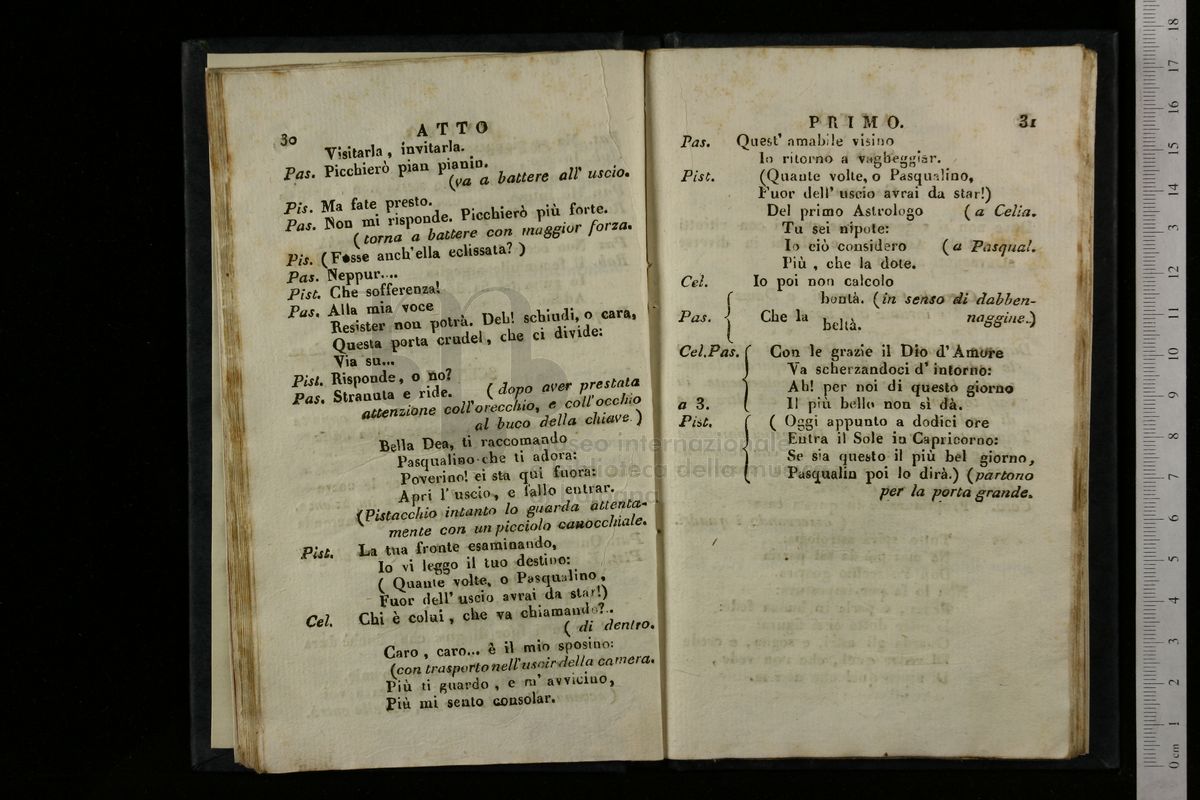 30
ATTO
Visitarla, invitarla.
Pas. Picchierò pian pianin.
(va a battere all' uscio.
Pis. Ma fate presto.
Pas. Non mi risponde. Picchierò più forte.
(torna a battere con maggior forza.
Pis. (Fosse anch'ella eclissata?)
Pas. Neppur....
Pist. Che sofferenza!
Pas. Alla mia voce
Resister non potrà. Deh! schiudi, o cara,
Questa porta crudel, che ci divide:
Via su...
Pist. Risponde, o no?
Pas. Stranuta e ride. (dopo aver prestata
attenzione coll'orecchio, e coll'occhio
al buco della chiave.)
Bella Dea, ti raccomando
Pasqualino che ti adora:
Poverino! ei sta qui fuora:
Apri l' uscio, e fallo entrar.
(Pistacchio intanto lo guarda attenta-
mente con un picciolo canocchiale.
Pist. La tua fronte esaminando,
Io vi leggo il tuo destino:
(Quante volte, o Pasqualino,
Fuor dell' uscio avrai da star!)
Cel. Chi è colui, che va chiamando?..
(di dentro.
Caro, caro... è il mio sposino:
(con trasporto nell'uscir della camera.
Più ti guardo, e m' avvicino,
Più mi sento consolar.
PRIMO.
31
Pas. Quest' amabile visino
Io ritorno a vagheggiar.
Pist. (Quante volte, o Pasqualino,
Fuor dell' uscio avrai da star!)
Del primo Astrologo (a Celia.
Tu sei nipote:
Io ciò considero (a Pasqual.
Più, che la dote.
Cel. Io poi non calcolo
bontà. (in senso di dabben-
Pas. Che la naggine.)
beltà.
Cel.Pas. Con le grazie il Dio d' Amore
Va scherzandoci d' intorno:
Ah! per noi di questo giorno
a 3. Il più bello non si dà.
Pist. (Oggi appunto a dodici ore
Entra il Sole in Capricorno:
Se sia questo il più bel giorno,
Pasqualin poi lo dirà.) (partono
per la porta grande.
museo internazionale
biblioteca della musica
di bologna
0 cm 1 2 3 4 5 6 7 8 9 10 11 12 13 14 15 16 17 18